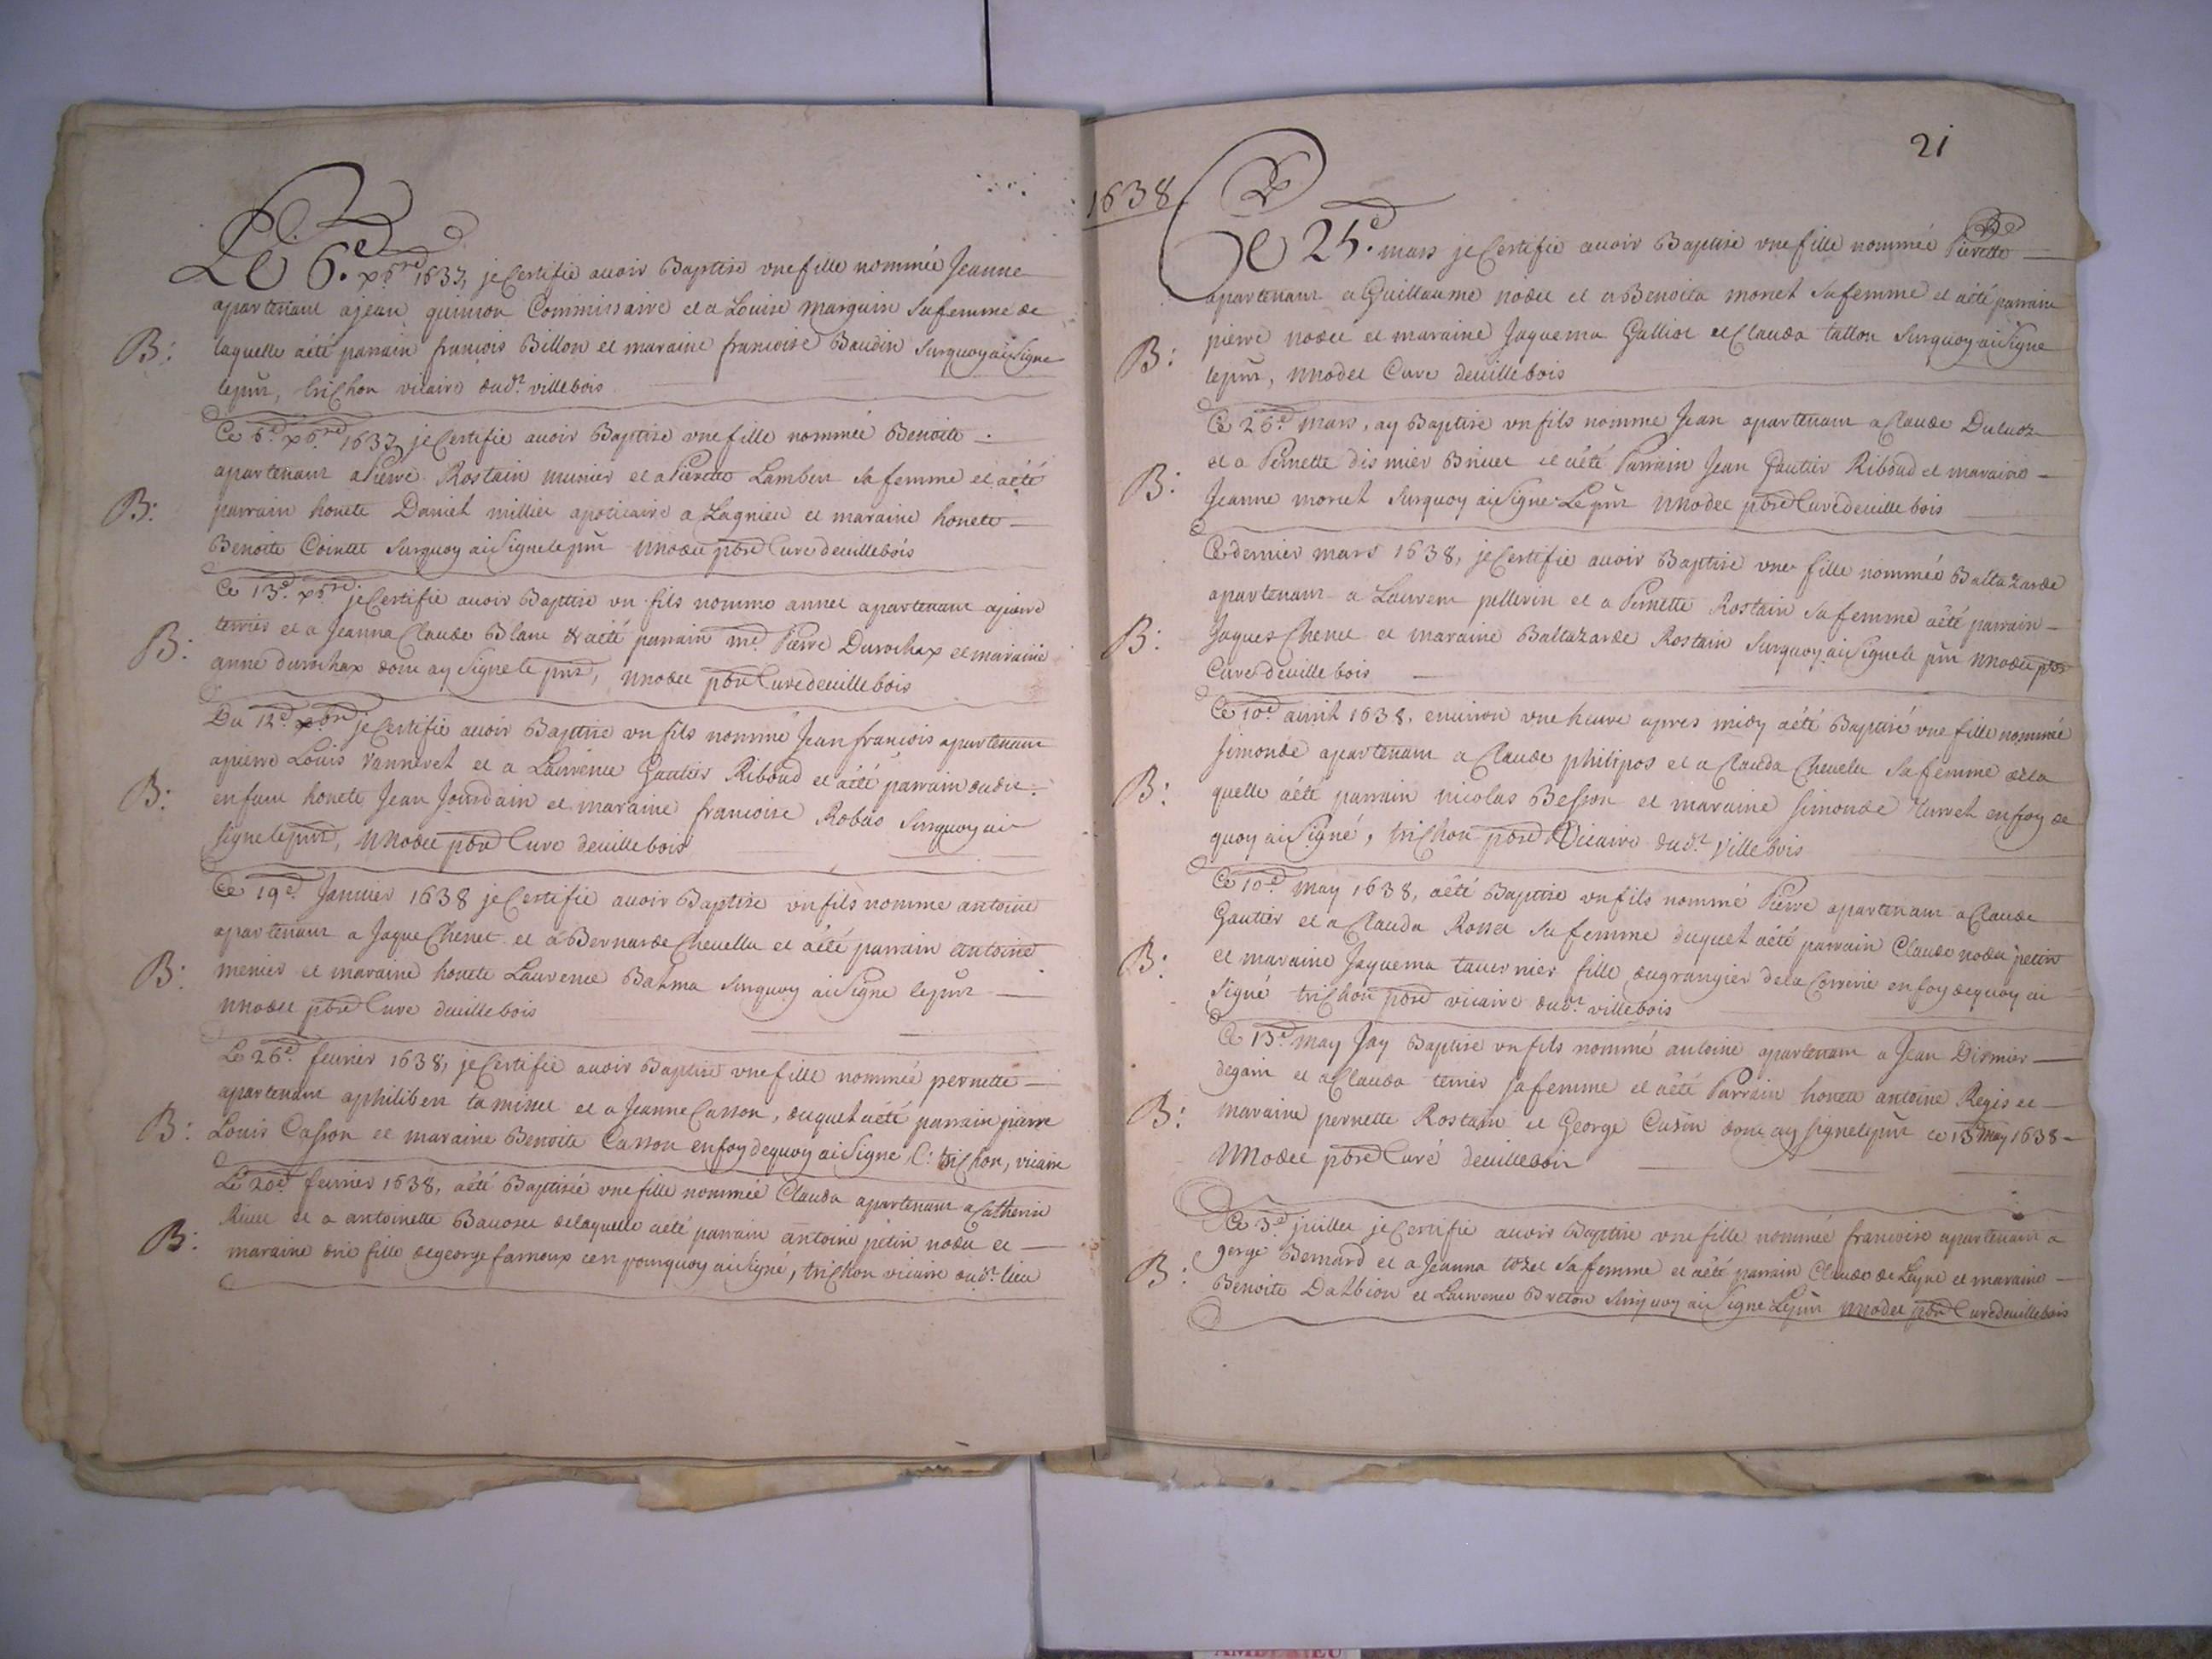 Le 6.e xbre 1637, je Certifie auoir Baptisé vne fille nommée Jeanne
apartenant a jean quinson Commissaire et a Louise Marguin sa femme de
B: laquelle aété parrain francois Billon et maraine francoise Baudin surquoy ai signe
le pnt, trichon vicaire dud.t villebois
Ce 6.e xbre 1637 je Certifie auoir Baptisé vne fille nommée Benoite
apartenant a Pierre Rostain munier et a Pierette Lambert sa femme et aété
B: parrain honete Daniel millier apoticaire a Lagnieu et maraine honete
Benoite Cointet surquoy ai signe le pnt Nnodet pbre Cure deuillebois
Ce 13.e xbre je Certifie auoir Baptisé vn fils nomme annet apartenant a pierre
B: terrier et a Jeanna Claude Blanc & aété parrain m.e Pierre Durochax et maraine
anne durochax dont ay signe le pnt, Nnodet pbre Cure deuillebois
Du 12.e xbre je Certifie auoir Baptisé vn fils nommé Jean francois apartenant
a pierre Louis Vanneret et a Laurence Gautier Riboud et aété parrain dudit
B: enfant honete Jean Jourdain et maraine francoise Robas surquoy ai
signe le pnt, Nnodet pbre Cure deuillebois
Ce 19.e Januier 1638 je Certifie auoir Baptisé vn fils nomme antoine
apartenant a Jaque Chenet et a Bernarde Cheuella et aété parrain antoine
B: menier et maraine honete Laurence Balma surquoy ai signe le pnt
Nnodet pbre Cure deuillebois
Le 26.e feurier 1638, je Certifie auoir Baptisé vne fille nommée pernette
apartenant a philibert taminet et a Jeanne Casson, duquel aété parrain pierre
B: Louis Casson et maraine Benoite Casson en foy dequoy ai signé C: trichon, vicaire
Le 20.e feurier 1638, aété Baptisée vne fille nommée Clauda apartenant a Catherin
Riuet et a antoinette Bauoset delaquelle aété parrain antoine petin nodet et
B: maraine une fille de george farnoux cest pourquoy ai signé, trichon vicaire dud.t lieu
21
1638
Ce 25.e mars je Certifie auoir Baptisé vne fille nommée Pierette
apartenant a Guillaume nodet et a Benoita monet sa femme et aété parrain
B: pierre nodet et maraine Jaquema Galliot et Clauda tallon surquoy ai signe
le pnt, Nnodet Cure deuillebois
Ce 26.e mars, ay Baptisé vn fils nomme Jean apartenant a Claude Duluoz
et a Pernette dismier Briuet et aété Parrain Jean Gautier Riboud et maraine
B: Jeanne moret surquoy ai signe Le pnt Nnodet pbre Cure deuillebois
Ce dernier mars 1638, je Certifie auoir Baptisé vne fille nommée Baltazarde
apartenant a Laurent pellerin et a Pernette Rostain sa femme aété parrain
B: Jaques Chenet et maraine Baltazarde Rostain surquoy ai signe le pnt Nnodet pbre
Cure deuillebois
Ce 10.e auril 1638, enuiron vne heure apres midy aété Baptisé vne fille nommée
simonde apartenant a Claude philipos et a Clauda Cheuelu sa femme dela
B: quelle aété parrain nicolas Besson et maraine simonde Murret en foy de
quoy ai signé, trichon pbre Vicaire dud.t Villebois
Ce 10.e may 1638, aété Baptisé vn fils nommé Pierre apartenant a Claude
Gautier et a Clauda Rosset sa femme duquel aété parrain Claude nodet petin
B: et maraine Jaquema tauernier fille du grangier dela Correrie en foy dequoy ai
signé trichon pbre vicaire dud.t villebois
Ce 13.e may Jay Baptisé vn fils nommé antoine apartenant a Jean Dismier
degain et a Clauda terrier sa femme et aété Parrain honete antoine Regis et
B: maraine pernette Rostain et George Cusin dont ay signe le pnt ce 13 may 1638
Nnodet pbre Curé deuillebois
Ce 3.e juillet je Certifie auoir Baptisé vne fille nommée francoise apartenant a
gorge Bernard et a Jeanna tozet sa femme et aété parrain Claude de Leyne et maraine
B: Benoite Dalbion et Laurence Breton surquoy ai signe Le pnt Nnodet pbre Cure deuillebois